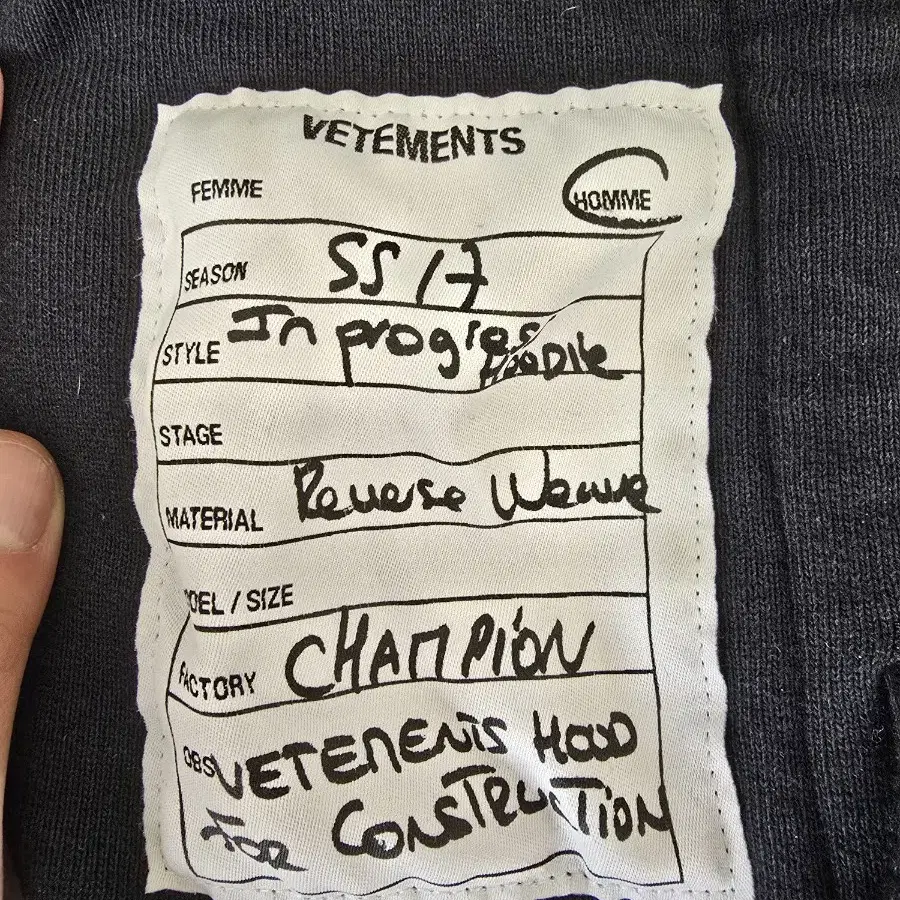 VETEMENTS
FEMME HOMME
SEASON SS 17
STYLE In progres HOODIE
STAGE
MATERIAL Reverse Weave
DEL / SIZE
FACTORY CHAMPiON
OBS VETEMENTS HOOD
FOR CONSTRUCTiON